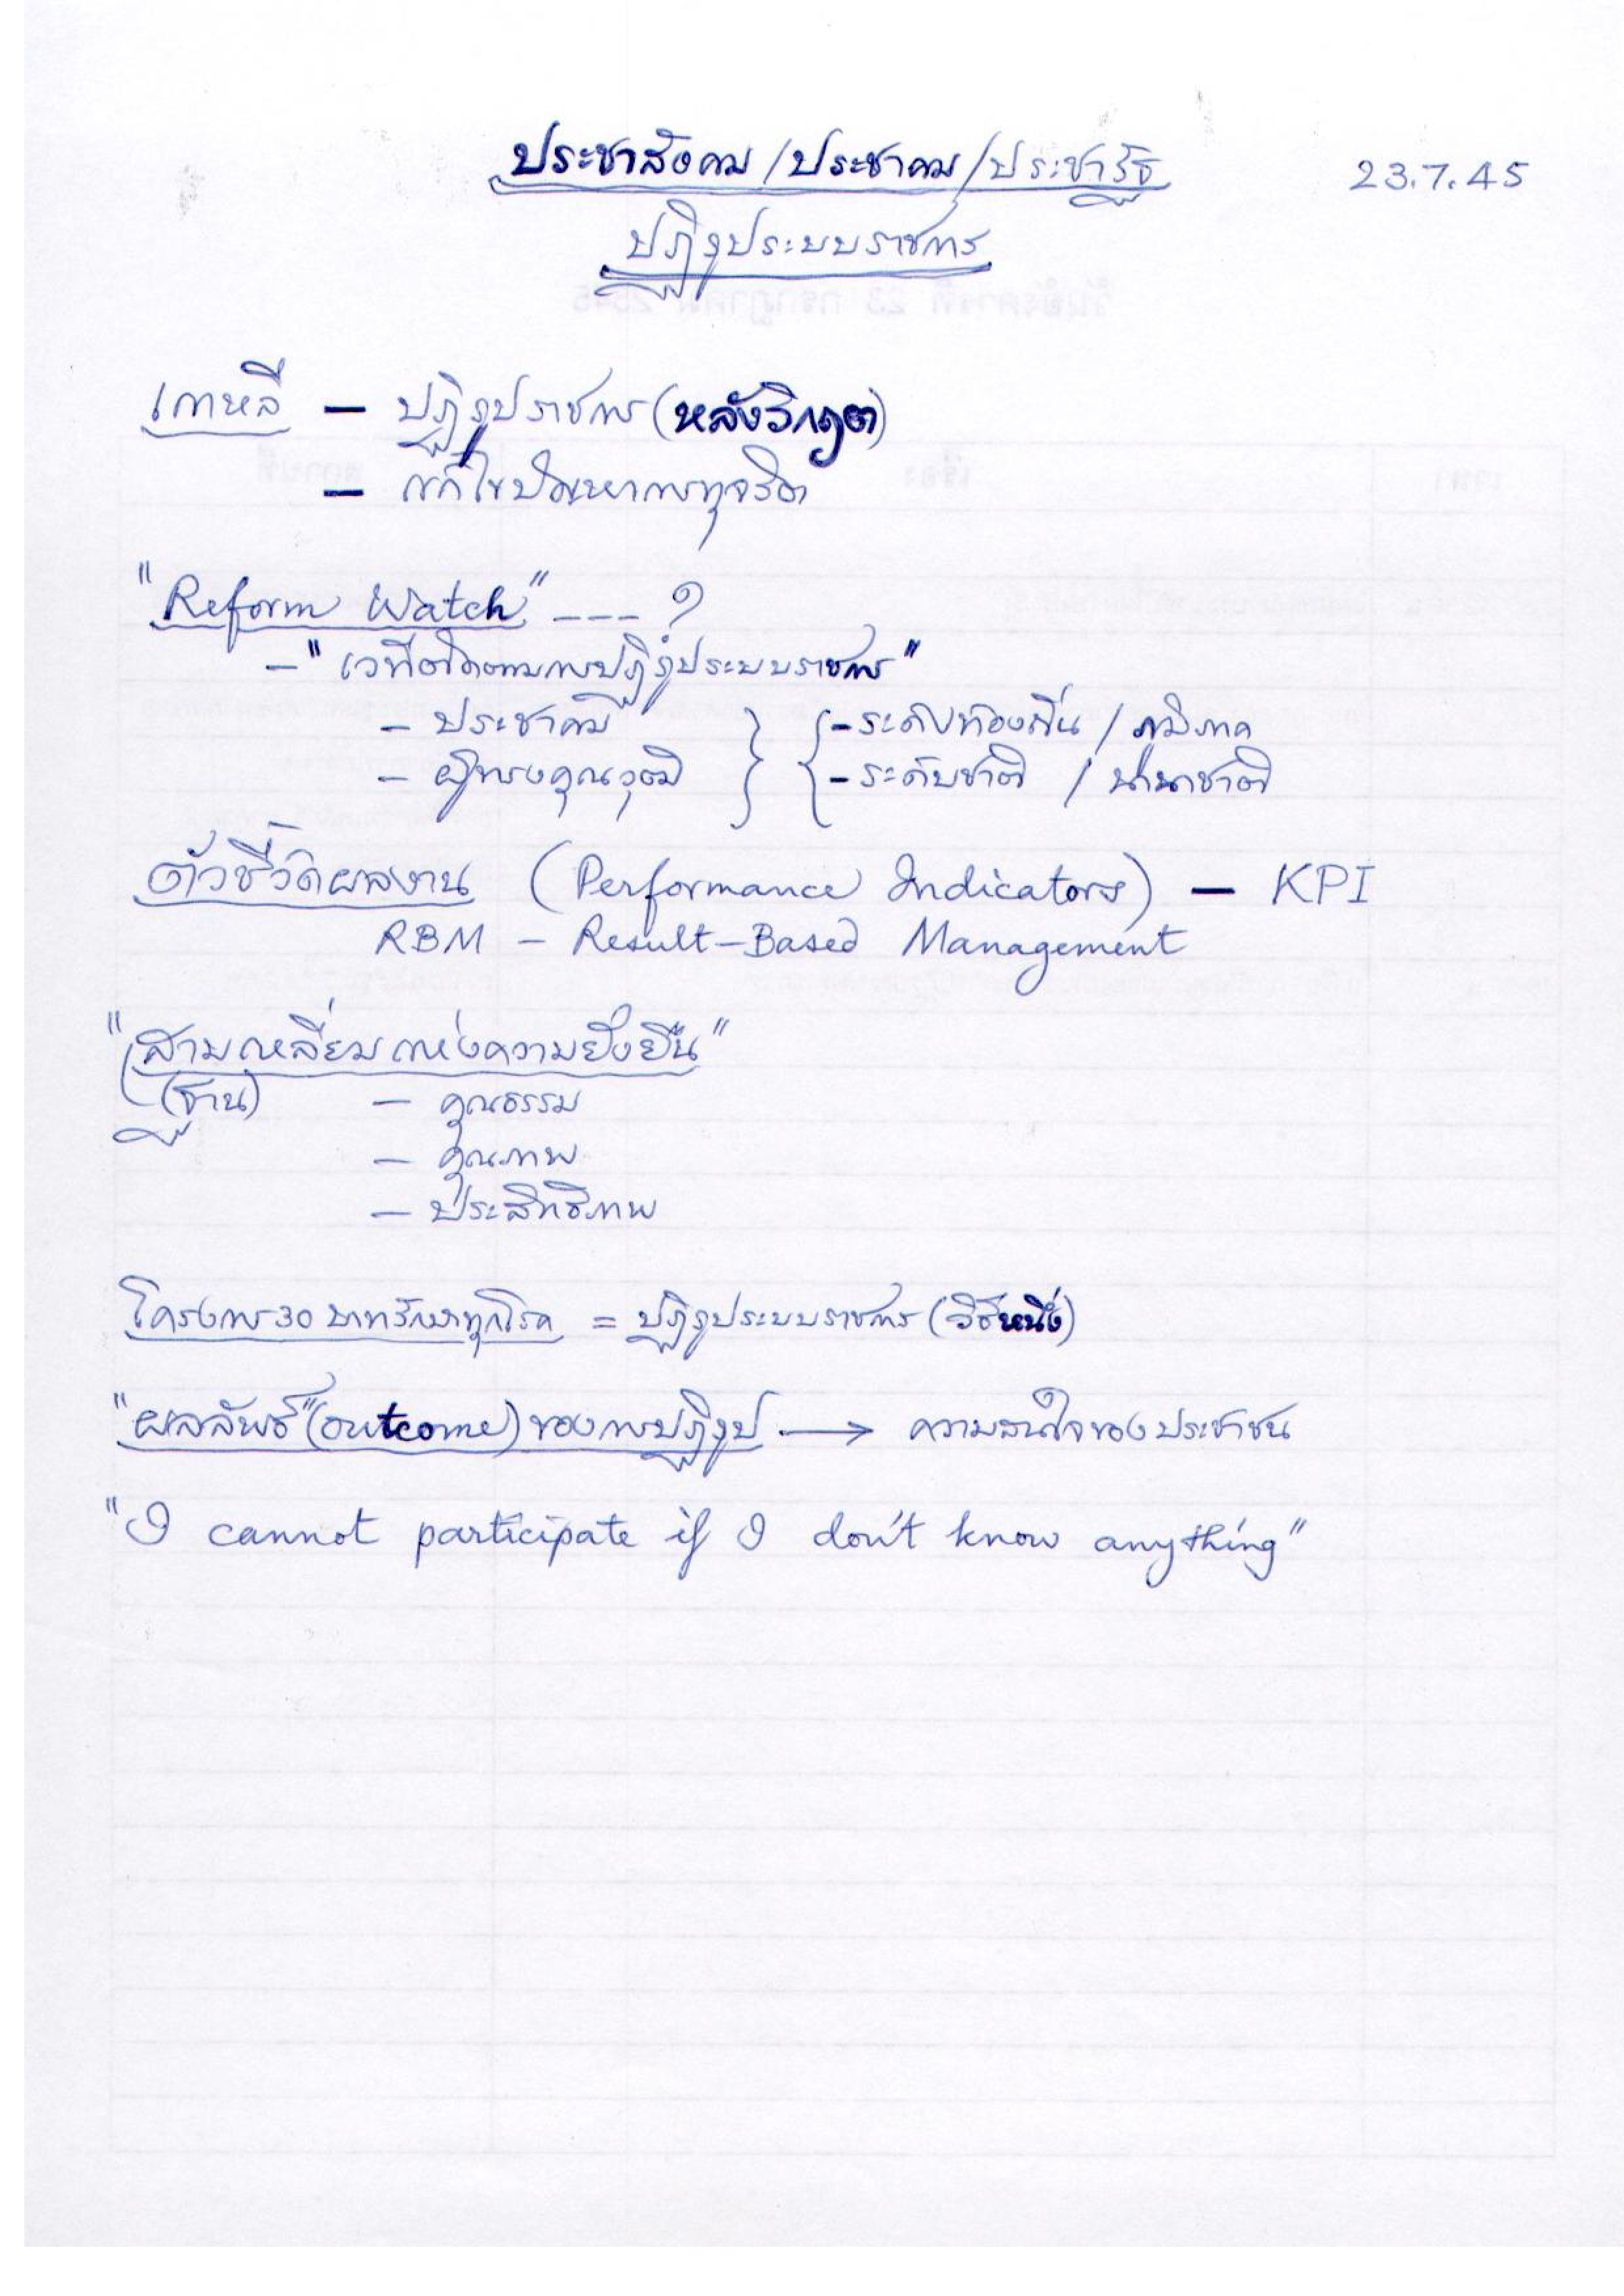 ประชาสังคม/ประชาคม/ประชารัฐ 23.7.45
ปฏิรูประบบราชการ
เกาหลี — ปฏิรูปราชการ (หลังวิกฤต)
— แก้ไขปัญหาการทุจริต
"Reform Watch" ---- ?
— "เวทีติดตามการปฏิรูประบบราชการ"
— ประชาคม } { - ระดับท้องถิ่น / ภูมิภาค
— ผู้ทรงคุณวุฒิ } { - ระดับชาติ / นานาชาติ
ตัวชี้วัดผลงาน (Performance Indicators) — KPI
RBM — Result-Based Management
"สามเหลี่ยมแห่งความยั่งยืน"
(ฐาน) — คุณธรรม
— คุณภาพ
— ประสิทธิภาพ
โครงการ 30 บาทรักษาทุกโรค = ปฏิรูประบบราชการ (วิธีหนึ่ง)
"ผลลัพธ์" (outcome) ของการปฏิรูป → ความสนใจของประชาชน
"I cannot participate if I don't know anything"